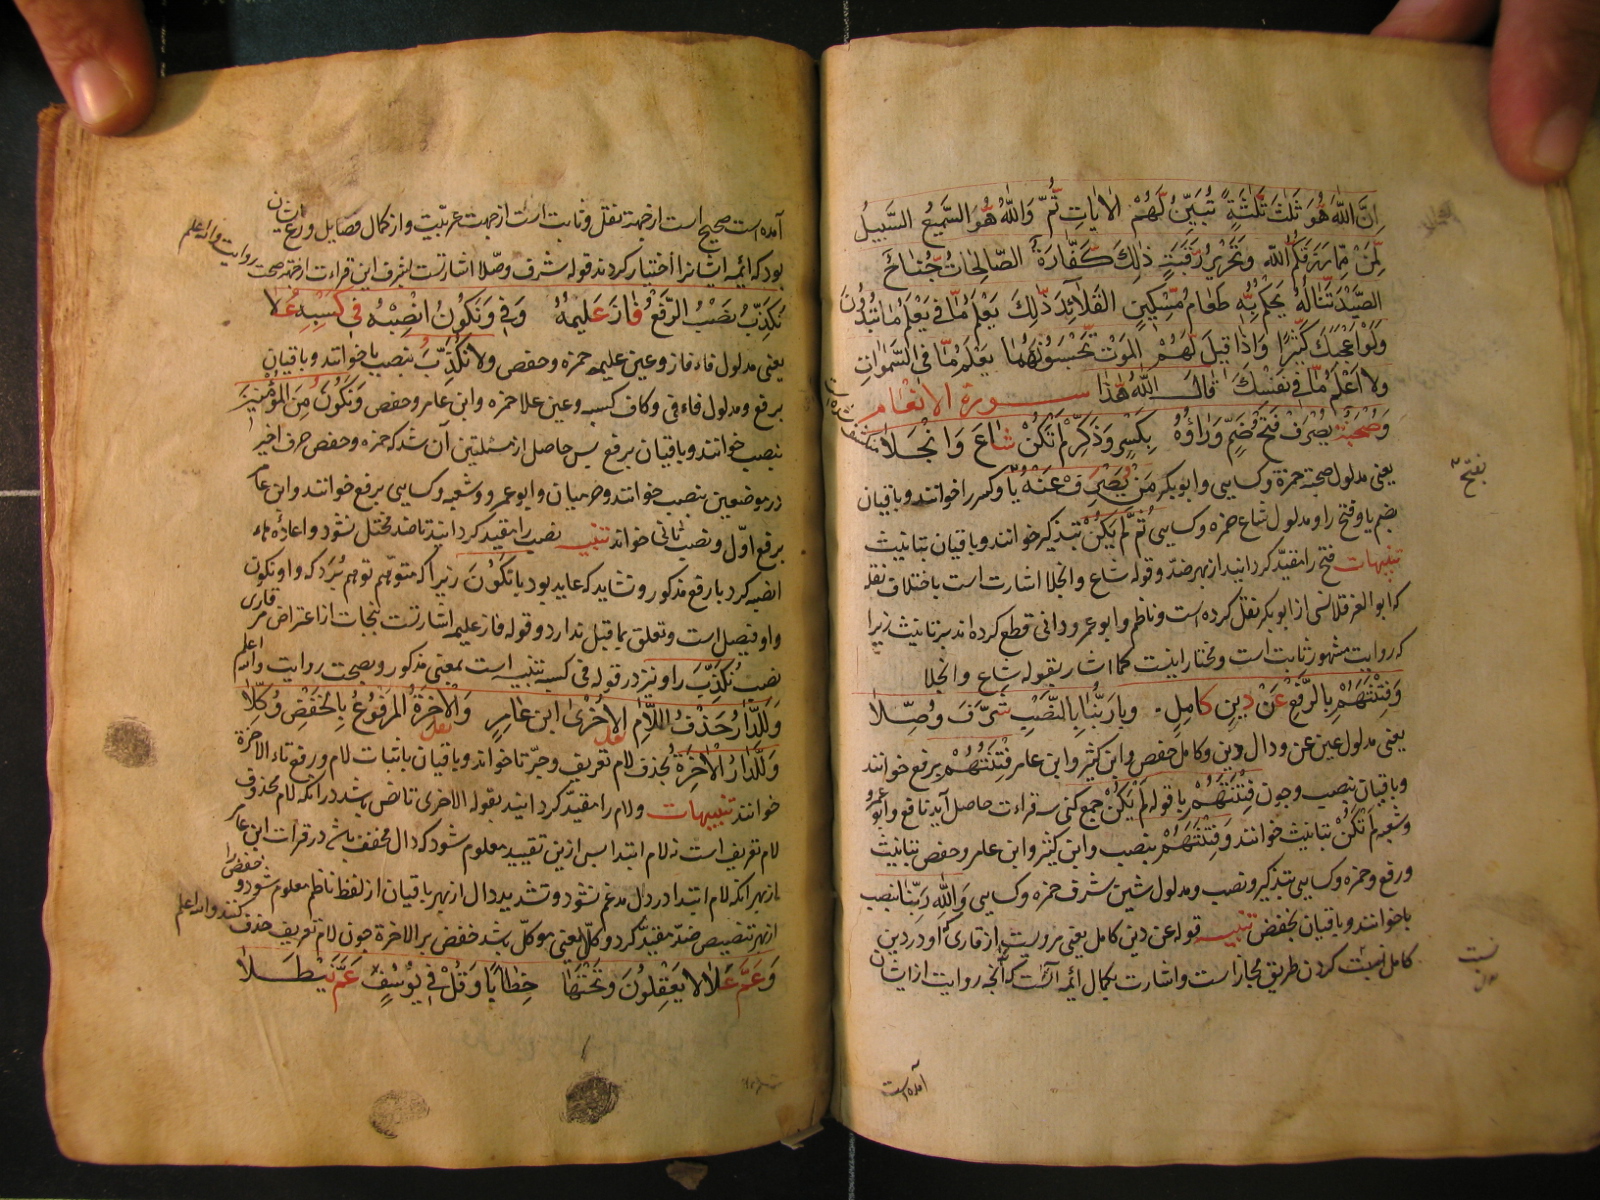 اِنَّ اللّٰهَ هُوَ ثَلٰثَ ثَّلٰثَةٍ نُبَيِّنُ لَّهُمْ الاٰيٰاتِ ثُمَّ وَاللّٰهُ هُوَ السَّمِيعُ السَّبِيلُ
لِّمَنْ مِّمَّا رَزَقَكُمُ اللّٰه وَتَحْرِيرُ رَّقَبَةٍ ذٰلِكَ كَفَّارَةُ الصَّالِحَاتِ جُّنَاحٌ
الصَّيْدِ تَّنَالُهُ يَحْكُمُ بِّه طَعَامُ مِّسْكِينٍ القَلاَئِدَ ذّٰلِكَ يَعْلَمُ مَّا فِى يَعْلَمُ مَا تُبْدُونَ
وَلَوْ اَعْجَبَكَ كَّثْرَةُ وَاِذَا قِيلَ لَّهُمْ الْمَوْتُ تَّحْبِسُونَهُمَا يَعْلَمُ مَّا فِى السَّمٰوَاتِ
وَلا اَعْلَمُ مَّا فِى نَفْسِكَ قَالَ اللّٰهُ هّٰذَا سورة الانعام
وَصُحْبَةُ يُصْرَفْ فَتْحُ ضَمٍّ وَرَاؤُهُ بِكَسْرٍ وَذَكِّرْ لَمْ تَكُنْ شَاعَ وَانْجَلاَ
يعنى مدلول صحبة حمزة وكسايى وابوبكر مَنْ يُصْرِفْ عَنْهُ يا وكسر را خوانند وباقيان
بضم يا وفتح را ومدلول شاع حمزه وكسايى ثُمَّ لَمْ يَكُنْ بتذكير خوانند وباقيان بتانيث
تنبيهات فتح را مقيّد كردانيد از بهر ضدّ وقوله شاع وانجلا اشارت است باختلاف نقله
كه ابو العز قلانسى از ابوبكر نقل كرده است وناظم وابو عمرو دانى قطع كرده اند بر تانيث زيرا
كه روايت مشهور ثابت است ومختار اينست كما اشار بقوله شاع وانجلا
وَفِتْنَتُهُمْ بِالرَّفْعِ عَنْ دِينِ كَامِلٍ وبَا رَبِّنَا بِالنَّصْبِ شَرَّفَ وُصَّلاَ
يعنى مدلول عين عن ودال دين وكامل حفص وابن كثير وابن عامر فِتْنَتُهُمْ برفع خوانند
وباقيان بنصب وجون فِتْنَتُهُمْ با قوله لَمْ يَكُنْ جمع كنى سه قراءت حاصل آيد نافع وابو عمرو
وشعبه لَمْ تَكُنْ بتانيث خوانند وَفِتْنَتَهُمْ بنصب وابن كثير وابن عامر وحفص بتانيث
ورفع وحمزه وكسايى بتذكير ونصب ومدلول شين شرف حمزه وكسايى وَاللّٰهِ رَبَّنَا بنصب
با خوانند وباقيان بخفض تنبيه قوله عن دين كامل يعنى مرويست از قارئ او در دين
كامل نسبت كردن طريق مجاز است واشارت بكمال ائمه آنست كه آنجه روايت ازايشان
بفتح
نسبت
آمده است
آمده است صحيح است از جهت نقل وثابت است از جهت عربيّت واز كمال فضايل ورع ايشان
بود كه ائمه ايشانرا اختيار كردند قوله شرف وصّلا اشارتست بشرف اين قراءت از جهت صحت روايت والله اعلم
نُكَذِّبَ نَصْبُ الرَّفْعُ فَازَ عَلِيمُهُ وَفِى وَنَكُونُ انْصِبْهُ فِى كَسْبِهِ عُلاَ
يعنى مدلول فاء فاز وعين عليمه حمزه وحفص وَلا نُكَذِّبَ بنصب با خوانند وباقيان
برفع ومدلول فاء فى وكاف كسبه وعين علا حمزه وابن عامر وحفص وَنَكُونَ مِنَ الْمُؤْمِنِينَ
بنصب خوانند وباقيان برفع پس حاصل از مسئلتين آن شد كه حمزه وحفص حرف اخير
در موضعين بنصب خوانند وحرميان وابو عمرو وشعبه وكسايى برفع خوانند وابن عامر
برفع اوّل ونصب ثانى خواند تنبيه نصب را مقيد كردانيد تا ضد مختل نشود واعادهٔ هاء
انصبه كرد با رفع مذكور وتشايد كه عايد بود با نَكُونَ زيرا كه متوهّم توهم بُرَد كه واو نكون
واو فيصل است وتعلق بما قبل ندارد وقوله فاز عليمه اشارتست بنجات از اعتراض مر قارى
نصب نُكَذِّبَ را ونيز در قوله فى كسبه تنبيه است بمعنى مذكور وبصحت روايت والله اعلم
وَلَلدَّارُ حَذْفُ اللَّامِ الاُخْرٰى ابنُ عَامِرٍ وَالْاٰخِرَةُ الْمَرْفُوعُ بِالْخَفْضِ وُكِّلاَ
وَلَلدَّارُ الْاٰخِرَةُ بحذف لام تعريف وجرّ تا خواند وباقيان باثبات لام ورفع تاء الآخرة
خوانند تنبيهات ولام را مقيدّ كردانيد بقوله الاخرى تا نص باشد در آنكه لام محذوف
لام تعريف است نه لام ابتدا پس ازين تقييد معلوم شود كه دال مخفف باشد در قراءت ابن عامر
از بهر آنكه لام ابتدا در دال مدغم نشود وتشديد دال از بهر باقيان از لفظ ناظم معلوم شود وخفض را
از بهر تنصيص ضدّ مقيدّ كرد وكلّا يعنى موكلّ باشد خفض بر الاخرة جون لام تعريف حذف كنند والله اعلم
وَعَمَّ عُلاَ لا يَعْقِلُونَ وَتَحْتَهَا خِطَابًا وَقُلْ فِى يُوسُفٍ عَمَّ نَيْطَلاَ